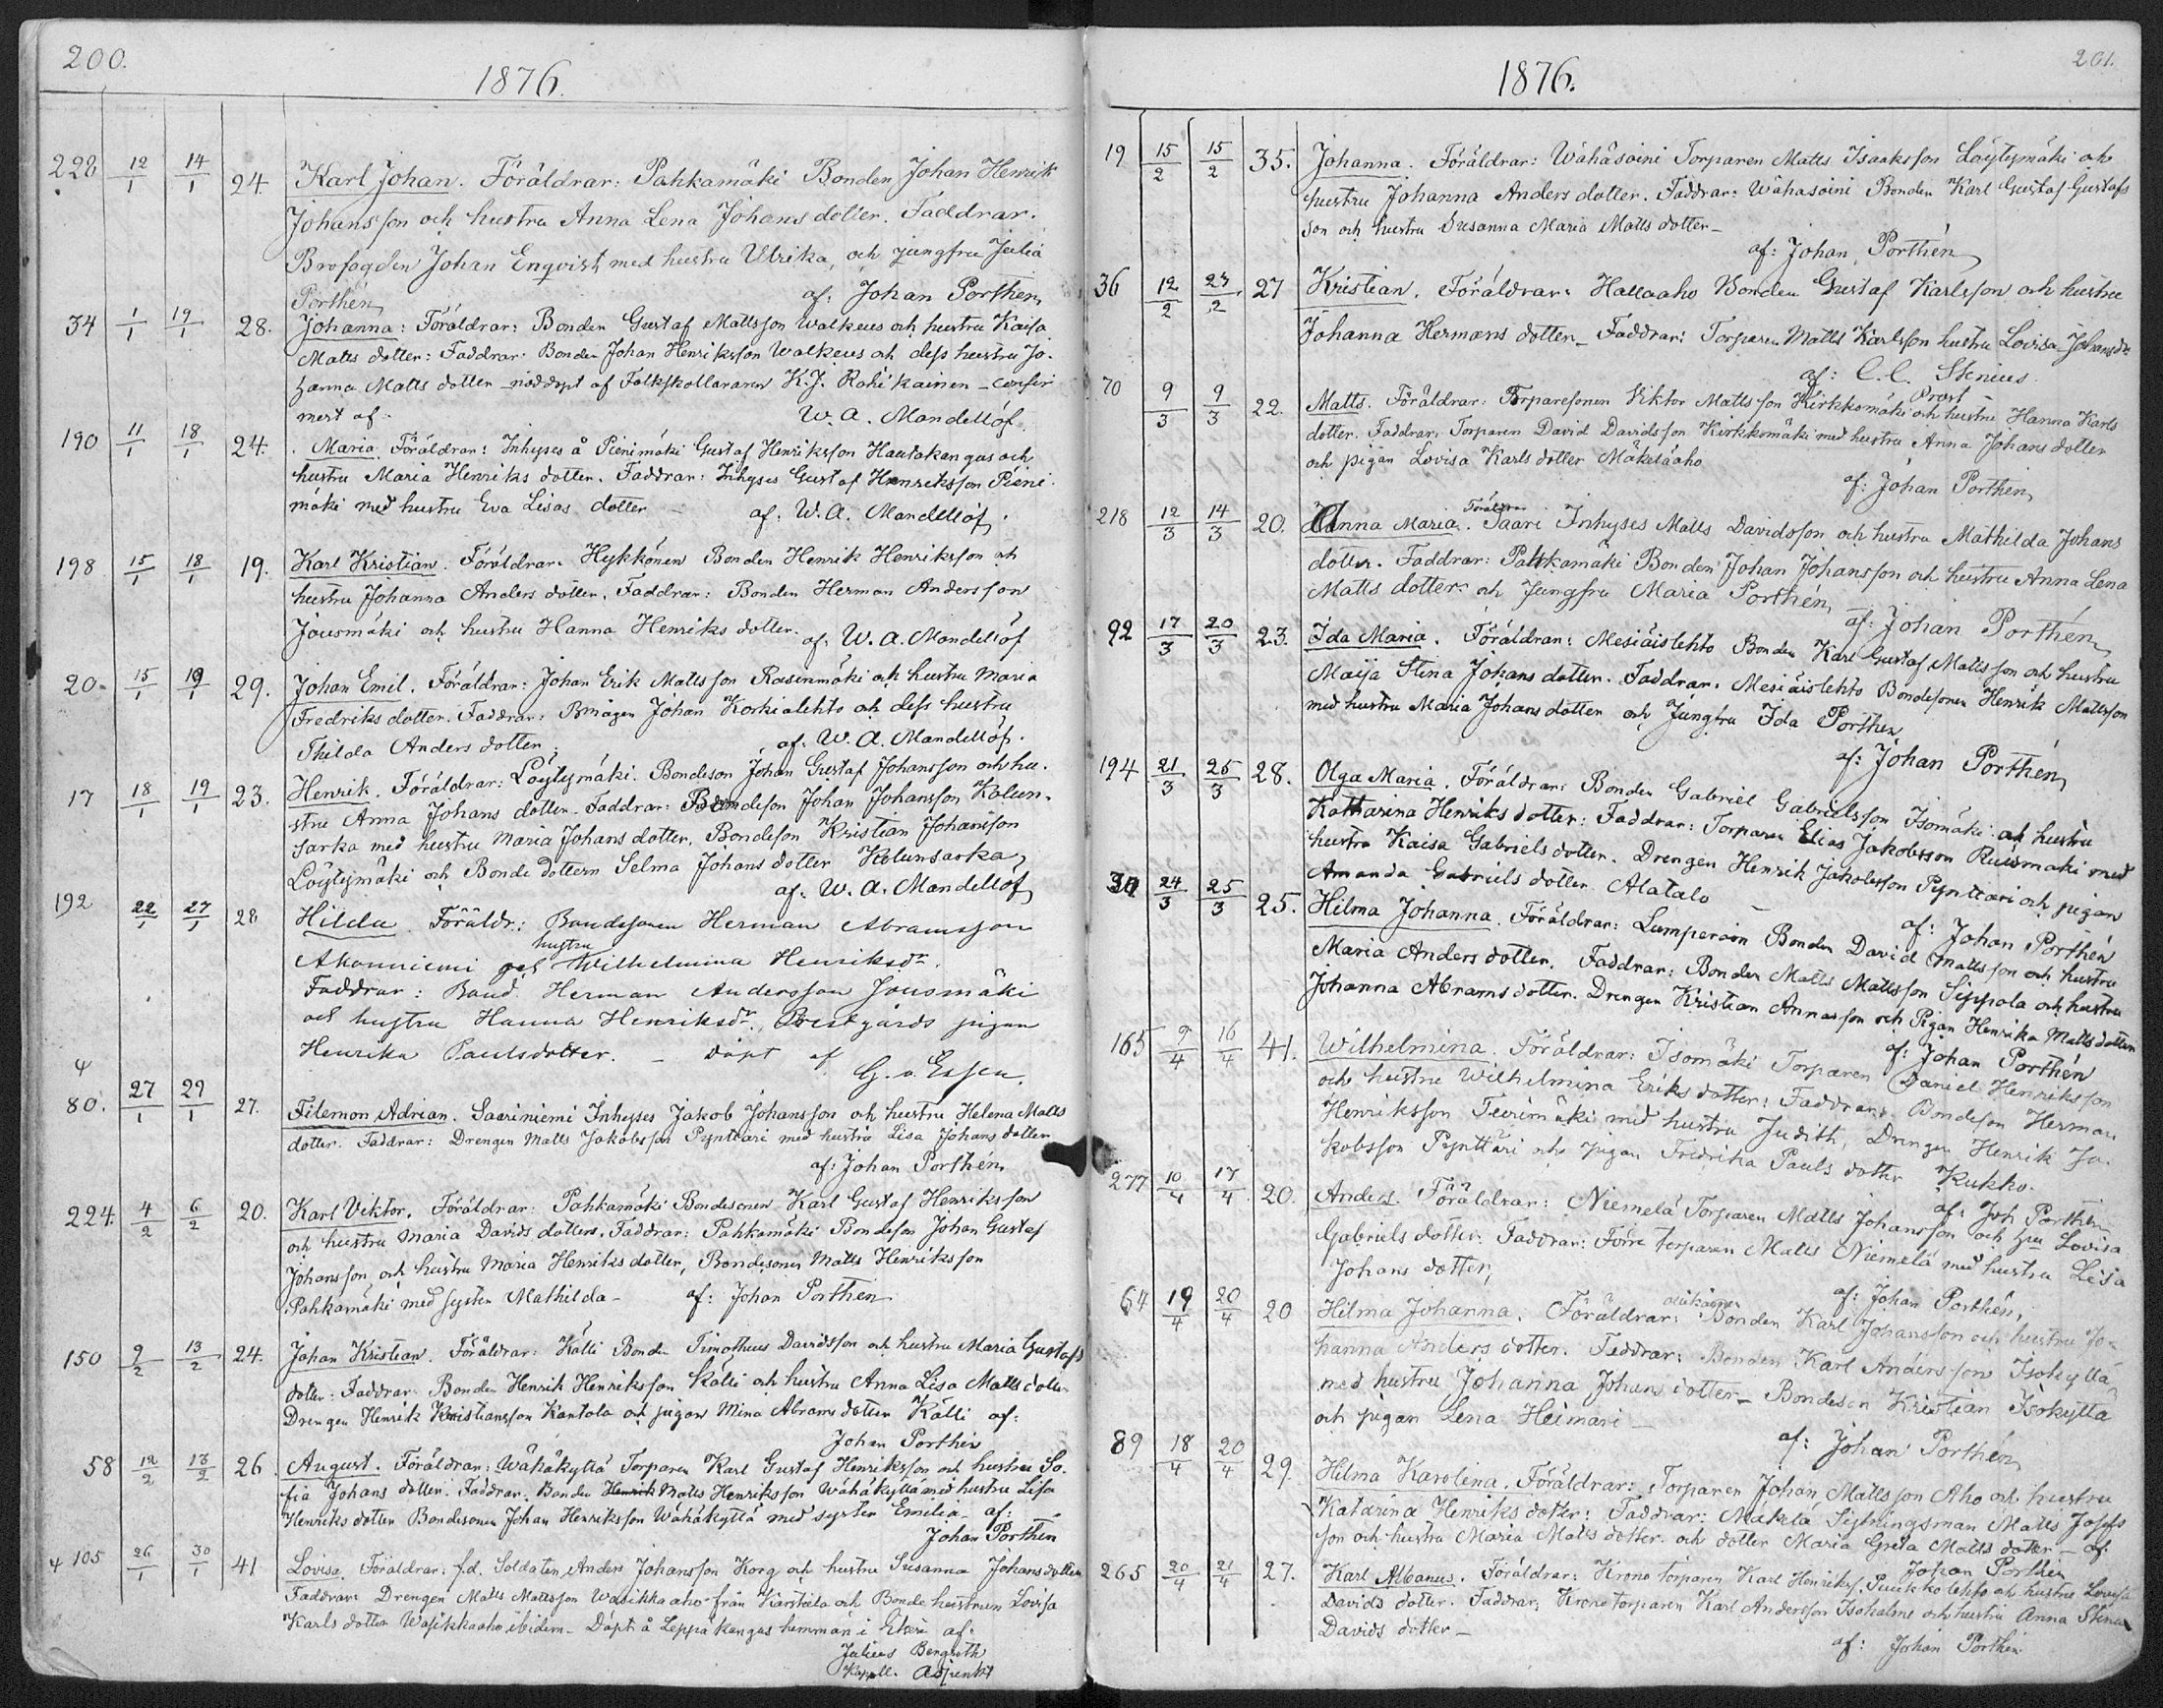 200.
1876.
228 12/1 14/1 24 Karl Johan. Föräldrar: Pahkamäki Bonden Johan Henrik
Johansson och hustru Anna Lena Johans dotter. Faddrar.
Brofogden Johan Enqvist med hustru Ulrika, och jungfru Julia
Porthén af: Johan Porthén
34 1/1 19/1 28. Johanna: Föräldrar: Bonden Gustaf Mattsson Walkeus och hustru Kaisa
Matts dotter: Faddrar: Bonden Johan Henriksson Walkeus och dess hustru Jo-
hanna Matts dotter – nöddöpt af Folkskolläraren K.J. Rahikainen – confir
mert af. W. A. Mandellöf.
190 11/1 18/1 24. Maria. Föräldrar: Inhyses å Pienimäki Gustaf Henriksson Hautakangas och
hustru Maria Henriks dotter. Faddrar: Inhyses Gustaf Henriksson Pieni
mäki med hustru Eva Lisas dotter – af. W. A. Mandellöf.
198 15/1 18/1 19. Karl Kristian. Föräldrar. Hykkönen Bonden Henrik Henriksson och
hustru Johanna Anders dotter. Faddrar: Bonden Herman Andersson
Jousmäki och hustru Hanna Henriks dotter. af W. A. Mandellöf
20. 15/1 19/1 29. Johan Emil. Föräldrar: Johan Erik Mattsson Rasinmäki och hustru Maria
Fredriks dotter. Faddrar: Bmågen Johan Korkialehto och dess hustru
Thilda Anders dotter; af. W. A. Mandellöf.
17 18/1 19/1 23. Henrik. Föräldrar: Löytymäki. Bondeson Johan Gustaf Johansson och hu-
stru Anna Johans dotter. Faddrar: Bondeson Johan Johansson Kolun-
sarka med hustru Maria Johans dotter, Bondeson Kristian Johansson
Löytymäki och Bonde dottern Selma Johans dotter Kolunsarka,
af. W. A. Mandellöf
192 22/1 27/1 28 Hilda. Föräldr.: Bondesonen Herman Abramsson
hustru
Akonniemi och Wilhelmina Henriksdr.
Faddrar: Bond. Herman Andersson Jousmäki
och hustru Hanna Henriksdr., Prestgårds pigan
Henrika Paulsdotter. – döpt af
G. v. Essen.
80. 27/1 29/1 27. Filemon Adrian. Saariniemi Inhyses Jakob Johansson och hustru Helena Matts
dotter. Faddrar: Drengen Matts Jakobsson Pynttäri med hustru Lisa Johans dotter
af: Johan Porthén
224. 4/2 6/2 20. Karl Viktor. Föräldrar: Pahkamäki Bondesonen Karl Gustaf Henriksson
och hustru Maria Davids dotter. Faddrar: Pahkamäki Bondeson Johan Gustaf
Johansson och hustru Maria Henriks dotter, Bondesonen Matts Henriksson
Pahkamäki med systern Mathilda – af: Johan Porthén
150 9/2 13/2 24. Johan Kristian. Föräldrar: Källi Bonden Timotheus Davidsson och hustru Maria Gustafs
dotter: Faddrar: Bonden Henrik Henriksson Källi och hustru Anna Lisa Matts dotter
Drengen Henrik Kristiansson Kantola och pigan Mina Abrams dotter Källi af:
Johan Porthén
58 12/2 13/2 26. August. Föräldrar: Wähäkyttä Torparen Karl Gustaf Henriksson och hustru So-
fia Johans dotter. Faddrar. Bonden Henrik Matts Henriksson Wähäkyttä med hustru Lisa
Henriks dotter Bondesonen Johan Henriksson Wähäkyttä med syster Emilia – af:
Johan Porthén
105 26/1 30/1 41 Lovisa. Föräldrar: f.d. Soldaten Anders Johansson Korg och hustru Susanna Johans dotter
Faddrar: Drengen Matts Mattsson Wasikkaaho från Karstula och Bonde hustrun Lovisa
Karls dotter Wasikkaaho ibidem – Döpt å Leppäkangas hemman i Etseri af.
Julius Bengroth
Kapell. Adjunkt
201.
1876.
19 15/2 15/2 35. Johanna. Föräldrar: Wähäsoini Torparen Matts Isaaksson Löytymäki och
hustru Johanna Anders dotter. Faddrar: Wähäsoini Bonden Karl Gustaf Gustafs
son och hustru Susanna Maria Matts dotter –
af: Johan Porthén
36 12/2 27/2 27 Kristian. Föräldrar: Hallaaho Bonden Gustaf Karlsson och hustru
Johanna Hermans dotter – Faddrar: Torparen Matts Karlsson hustru Lovisa Johansdr
af: C. C. Stenius.
Prost –
70 9/3 9/3 22. Matts. Föräldrar: Torparesonen Viktor Mattsson Kirkkomäki och hustru Hanna Karls
dotter. Faddrar. Torparen David Davidsson Kirkkomäki med hustru Anna Johans dotter
och pigan Lovisa Karls dotter Mäkeläaho
af: Johan Porthén
218 12/3 14/3 20. Föräldrar
Anna Maria. Saari Inhyses Matts Davidsson och hustru Mathilda Johans
dotter. Faddrar: Pahkamäki Bonden Johan Johansson och hustru Anna Lena
Matts dotter och Jungfru Maria Porthén,
af: Johan Porthén
92 17/3 20/3 23. Ida Maria. Föräldrar: Mesiäislehto Bonden Karl Gustaf Mattsson och hustru
Maija Stina Johans dotter. Faddrar. Mesiäislehto Bondesonen Henrik Mattsson
med hustru Maria Johans dotter och Jungfru Ida Porthén
af: Johan Porthén
194 21/3 25/3 28. Olga Maria. Föräldrar: Bonden Gabriel Gabrielsson Isomäki och hustru
Katharina Henriks dotter: Faddrar: Torparen Elias Jakobsson Ruismäki med
hustru Kaisa Gabriels dotter. Drengen Henrik Jakobsson Pynttäri och pigan
Amanda Gabriels dotter Alatalo –
af: Johan Porthén
24/3 25/3 25. Hilma Johanna. Föräldrar: Lumperoin Bonden David Mattsson och hustru
Maria Anders dotter. Faddrar: Bonden Matts Mattsson Seppola och hustru
Johanna Abrams dotter. Drengen Kristian Annasson och Pigan Henrika Matts dotter
af: Johan Porthén
165 9/4 16/4 41. Wilhelmina. Föräldrar: Isomäki Torparen Daniel Henriksson
och hustru Wilhelmina Eriks dotter: Faddrar: Bondeson Herman
Henriksson Teerimäki med hustru Judith, Drengen Henrik Ja-
kobsson Pynttäri och pigan Fredrika Pauls dotter Kukko.
af: Joh Porthén
277 10/4 17/4 20. Anders. Föräldrar: Niemelä Torparen Matts Johansson och hru Lovisa
Gabriels dotter: Faddrar: Förre torparen Matts Niemelä med hustru Lisa
Johans dotter,
af: Johan Porthén,
64 19/4 20/4 20 Hilma Johanna. Föräldrar: Bonden Karl Johansson och hustru Jo-
hanna Anders dotter. Faddrar: Bonden Karl Andersson Isokyttä
med hustru Johanna Johans dotter – Bondeson Kristian Isokyttä
och pigan Lena Heimari –
af: Johan Porthén
89 18/4 20/4 29. Hilma Karolina. Föräldrar: Torparen Johan Mattsson Aho och hustru
Katarina Henriks dotter: Faddrar: Mäkelä Sytningsman Matts Josefs
son och hustru Maria Matts dotter och dotter Maria Greta Matts dotter – af:
Johan Porthén
265 20/4 21/4 27. Karl Albanus. Föräldrar: Krono torparen Karl Henriks. Puukkolehto och hustru Lovisa
Davids dotter. Faddrar: Krono torparen Karl Andersson Isoholme och hustru Anna Stina
Davids dotter –
af: Johan Porthén